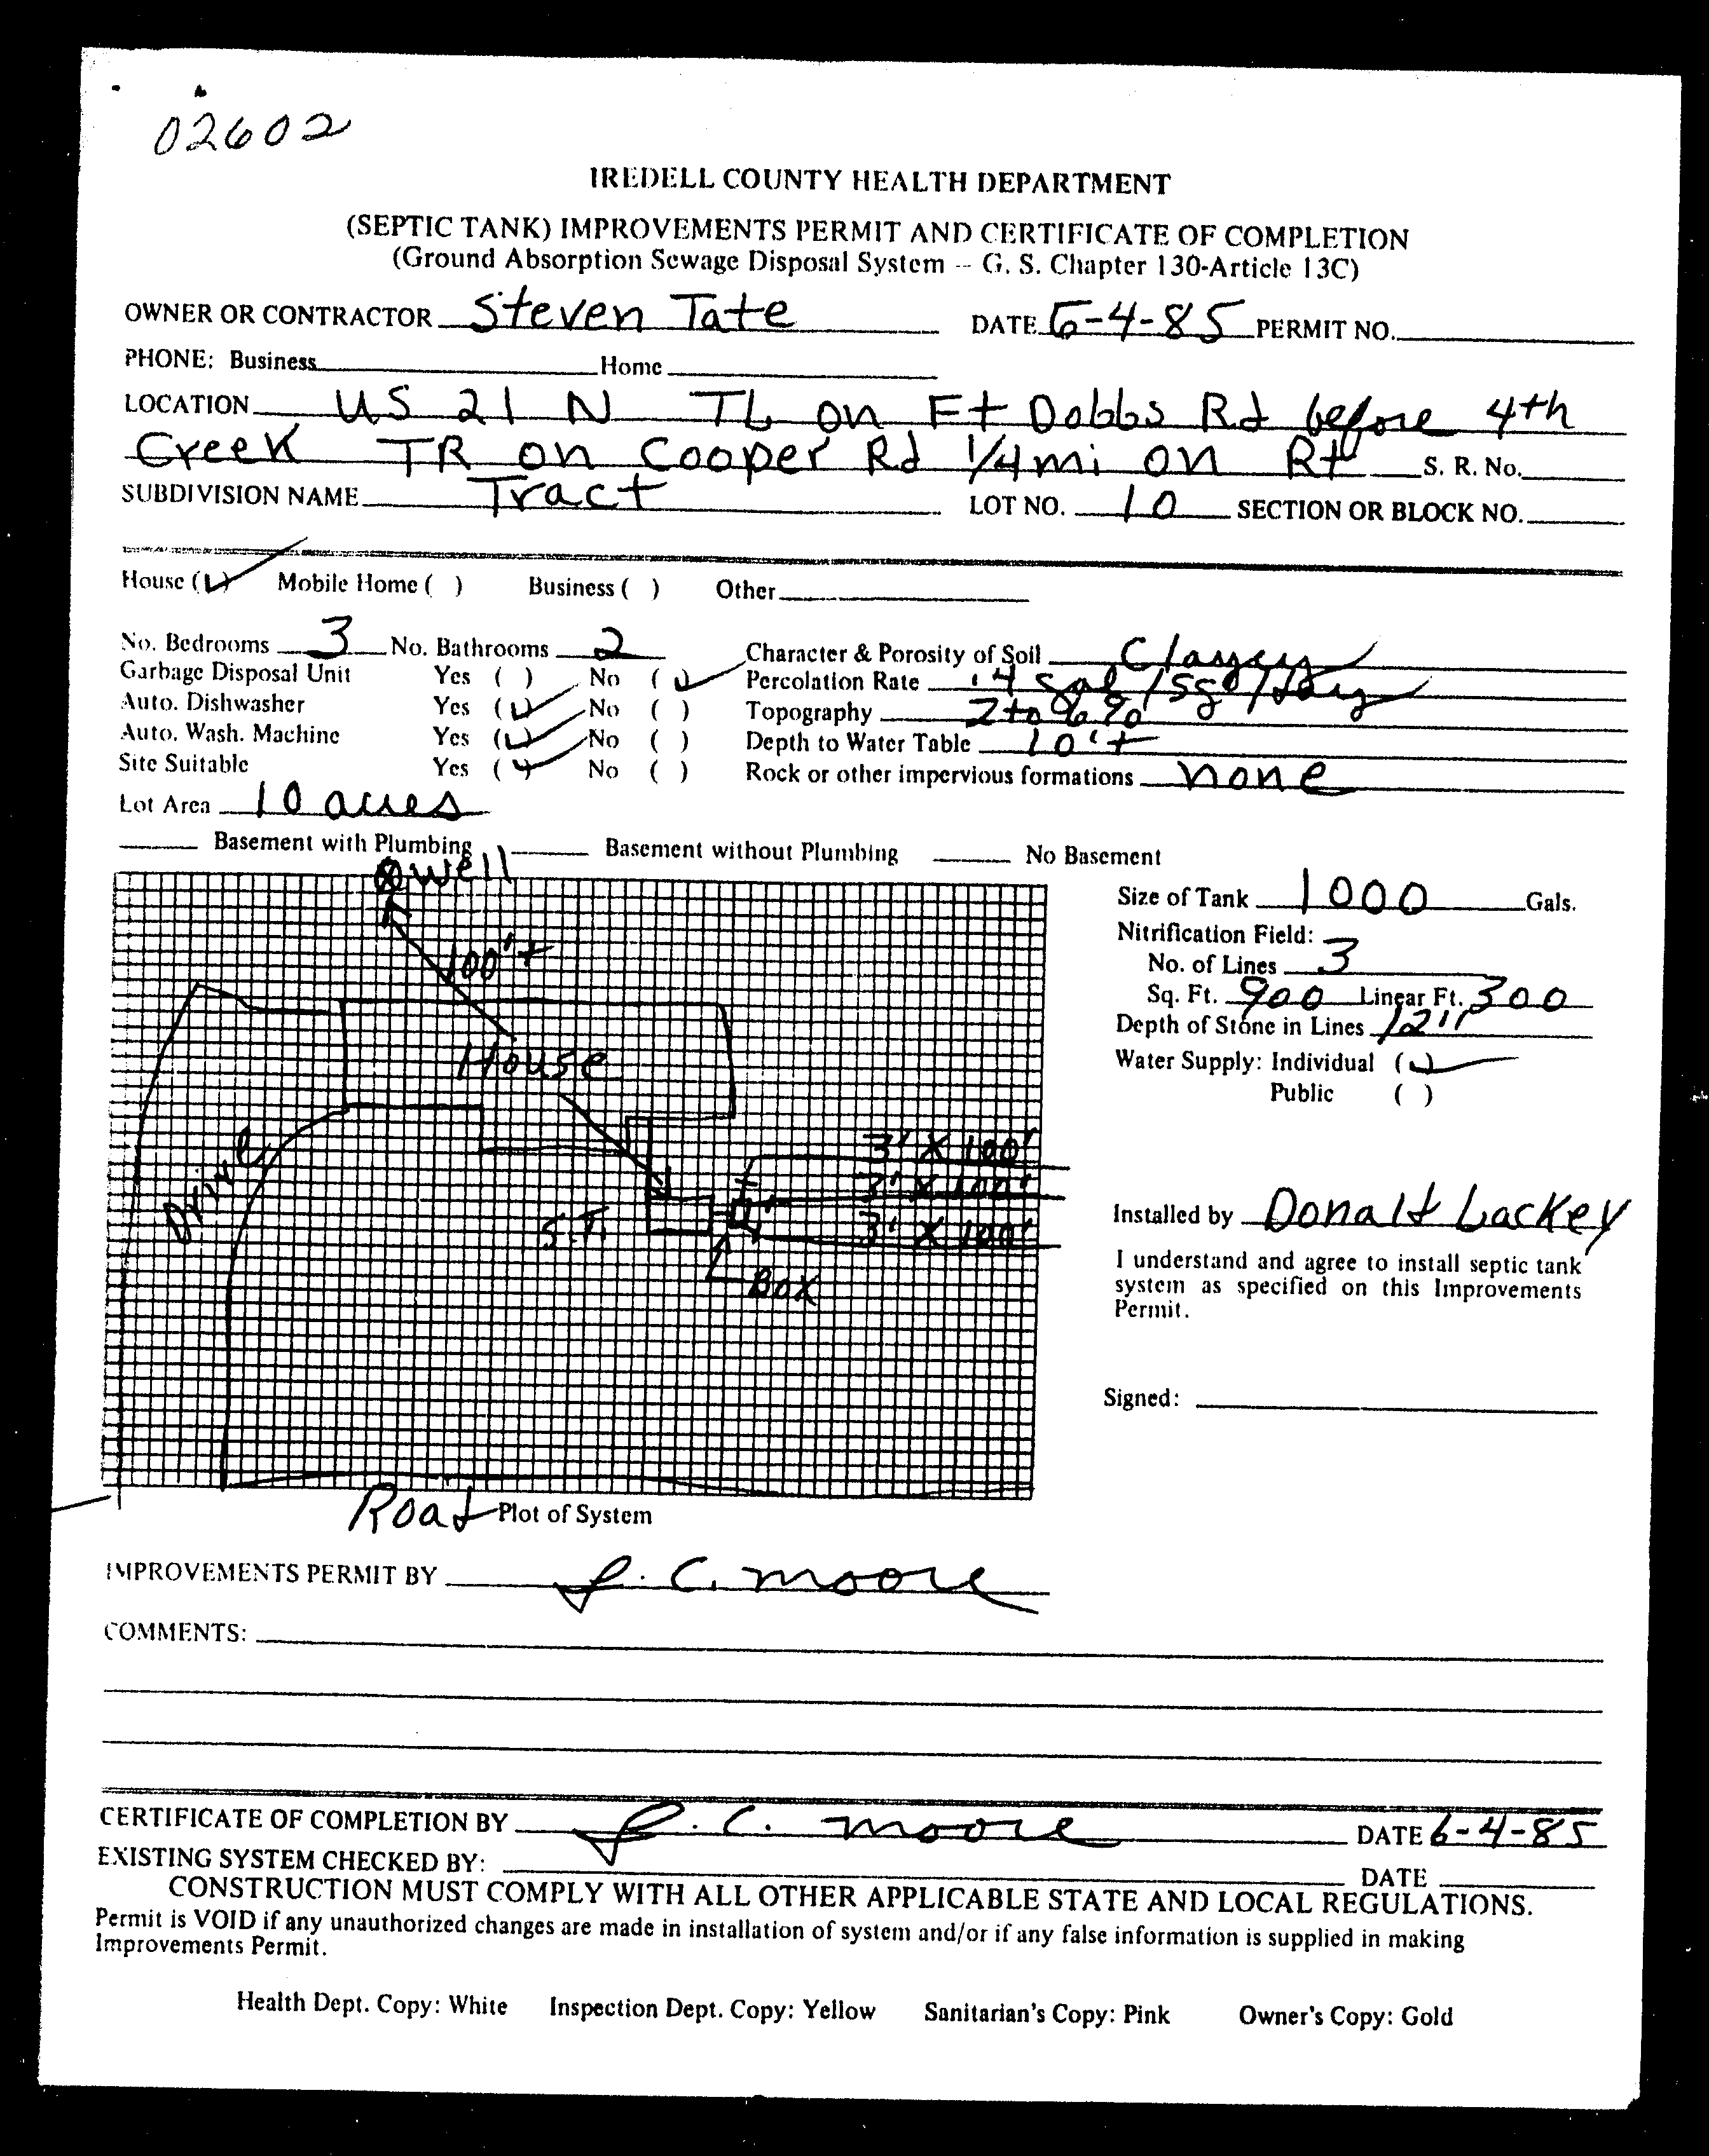 02602
IREDELL COUNTY HEALTH DEPARTMENT
(SEPTIC TANK) IMPROVEMENTS PERMIT AND CERTIFICATE OF COMPLETION
(Ground Absorption Sewage Disposal System -- G. S. Chapter 130-Article 13C)
OWNER OR CONTRACTOR Steven Tate DATE 6-4-85 PERMIT NO.
PHONE: Business Home
LOCATION US 21 N TL on Ft Dobbs Rd before 4th
Creek TR on Cooper Rd 1/4 mi on Rt S. R. No.
SUBDIVISION NAME Tract LOT NO. 10 SECTION OR BLOCK NO.
House (✓) Mobile Home ( ) Business ( ) Other
No. Bedrooms 3 No. Bathrooms 2 Character & Porosity of Soil Clayey
Garbage Disposal Unit Yes ( ) No (✓) Percolation Rate .4 gal/sq'/day
Auto. Dishwasher Yes (✓) No ( ) Topography 2 to 6%
Auto. Wash. Machine Yes (✓) No ( ) Depth to Water Table 10'+
Site Suitable Yes (✓) No ( ) Rock or other impervious formations none
Lot Area 10 acres
Basement with Plumbing Basement without Plumbing No Basement
Well
100'+
House
Drive
S.T.
3' X 100'
3' X 100'
3' X 100'
Box
Road
Plot of System
Size of Tank 1000 Gals.
Nitrification Field:
No. of Lines 3
Sq. Ft. 900 Linear Ft. 300
Depth of Stone in Lines 12"
Water Supply: Individual (✓)
Public ( )
Installed by Donald Lackey
I understand and agree to install septic tank
system as specified on this Improvements
Permit.
Signed:
IMPROVEMENTS PERMIT BY J. C. Moore
COMMENTS:
CERTIFICATE OF COMPLETION BY J. C. Moore DATE 6-4-85
EXISTING SYSTEM CHECKED BY: DATE
CONSTRUCTION MUST COMPLY WITH ALL OTHER APPLICABLE STATE AND LOCAL REGULATIONS.
Permit is VOID if any unauthorized changes are made in installation of system and/or if any false information is supplied in making
Improvements Permit.
Health Dept. Copy: White Inspection Dept. Copy: Yellow Sanitarian's Copy: Pink Owner's Copy: Gold